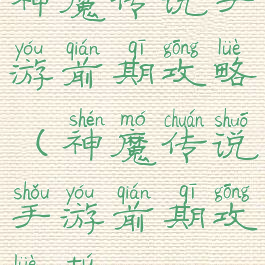 神魔传说手
yóu qián qī gōng lüè
游前期攻略
shén mó chuán shuō
（神魔传说
shǒu yóu qián qī gōng
手游前期攻